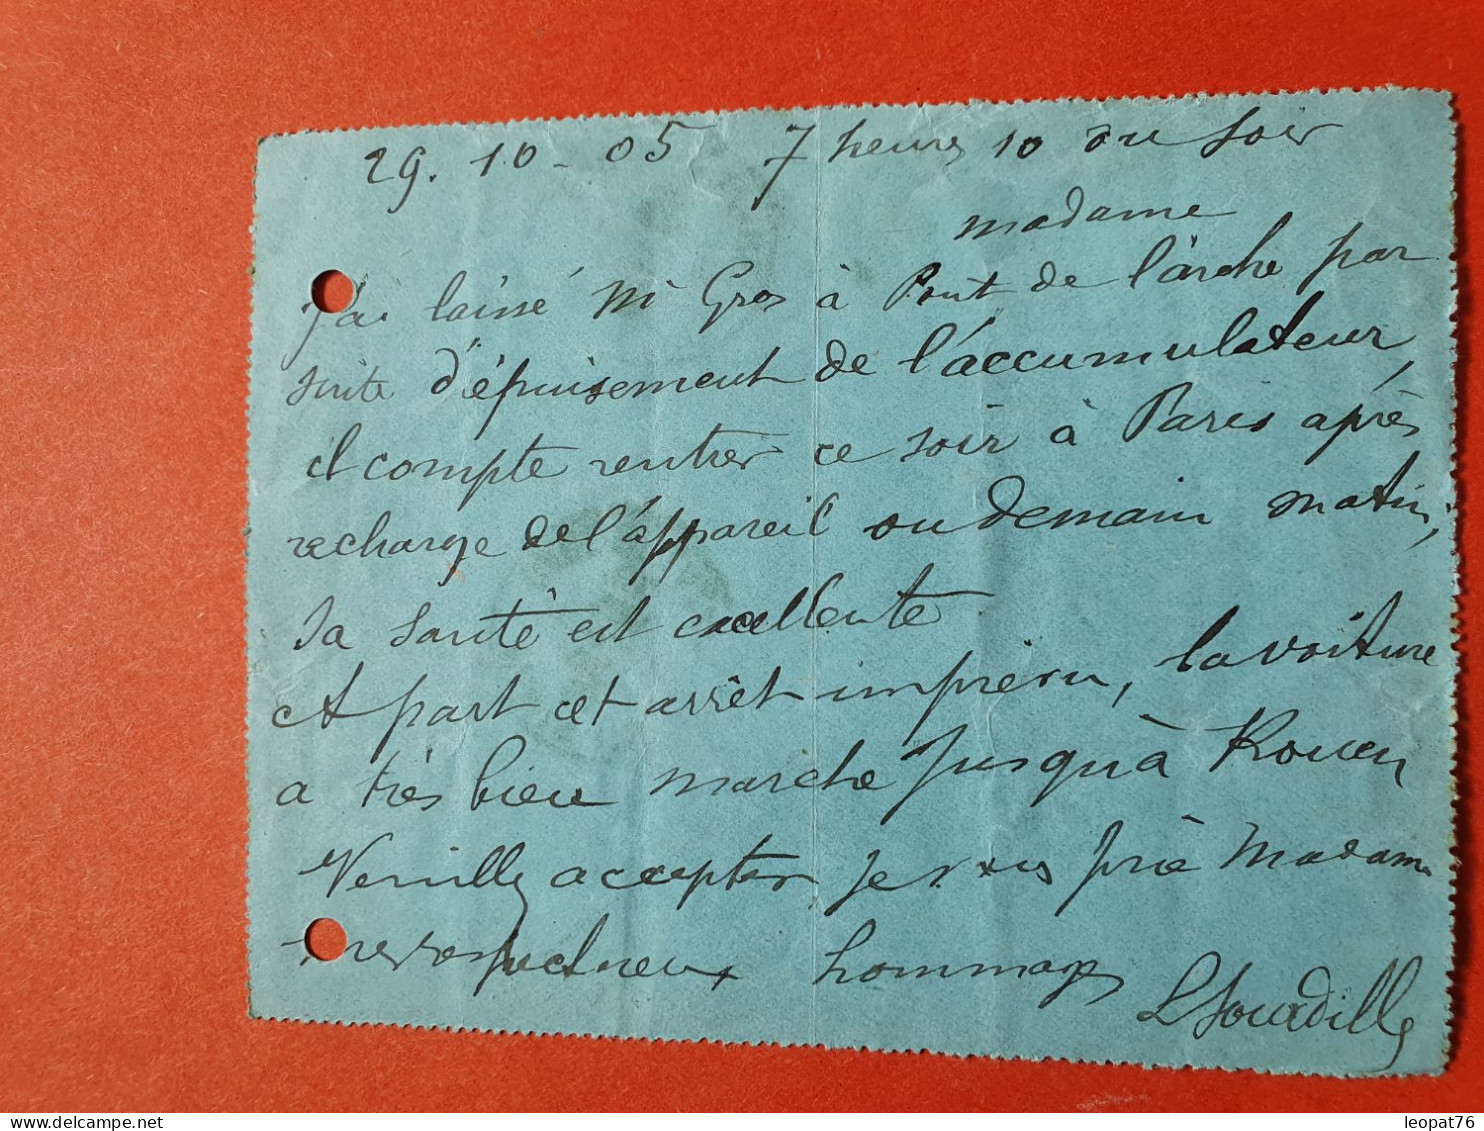 29. 10 - 05 7 heures 10 du soir
Madame
J'ai laissé Mr Gros à Pont de l'arche par
suite d'épuisement de l'accumulateur,
il compte rentrer ce soir à Paris après
recharge de l'appareil ou demain matin,
sa santé est excellente
A part cet arrêt imprévu, la voiture
a très bien marché jusqu'à Rouen
Veuillez accepter, je vous prie Madame
mes respectueux hommages
LJourdille
leopat76
Delcampe.net